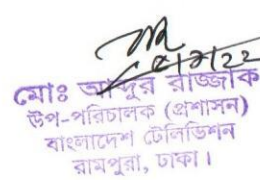 মোঃ আব্দুর রাজ্জাক
উপ-পরিচালক (প্রশাসন)
বাংলাদেশ টেলিভিশন
রামপুরা, ঢাকা।